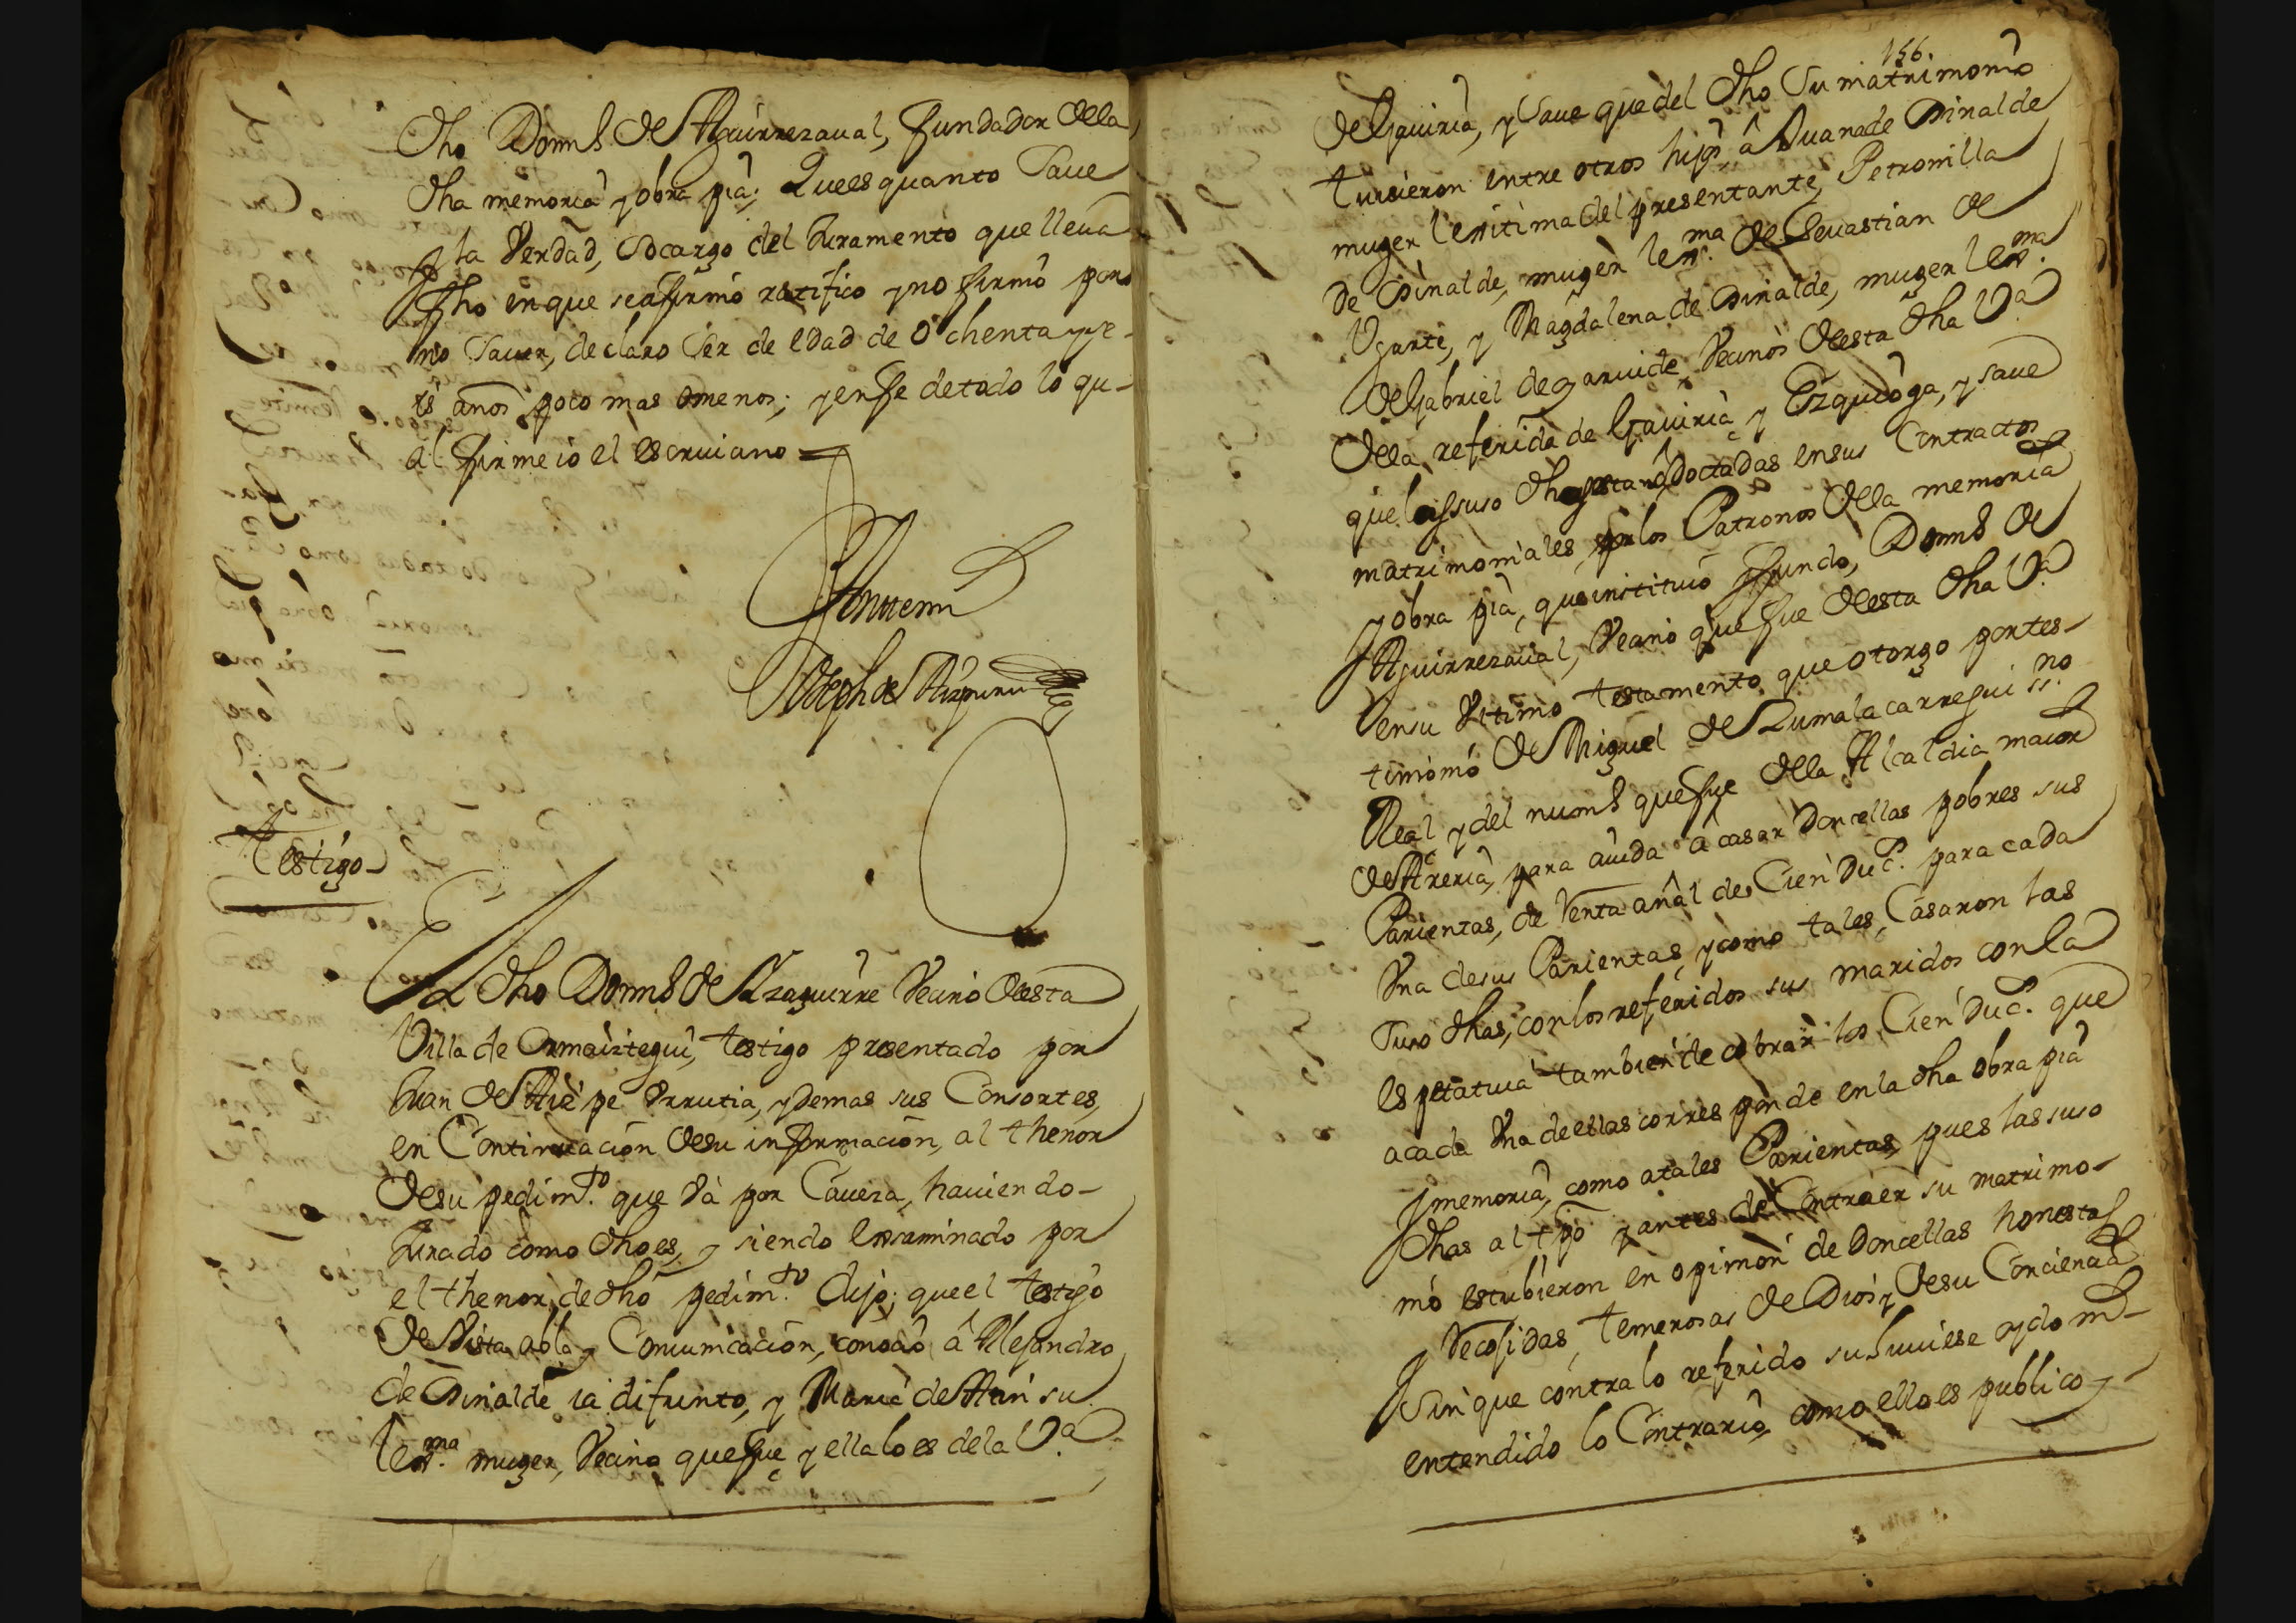 dho Domingˢ de Aguirrezaual, fundador dela
dha memoria y obra pia; Que es quanto Saue
y la Verdad, Socargo del Juramento que lleua
fho en que se afirmó ratifico y no firmó por
no Sauer, declaro Ser de edad de Ochenta y se-
is años poco mas omenos; y enfe de todo lo qu-
al firme io el escriuano =
Antemi
Joseph de Aizpuru
Testigo
El dho Domingˢ de Yzaguirre Vecino desta
Villa de Ormaiztegui, testigo presentado por
Juan de Arizpe Vrrutia, y demas sus Consortes,
en Continuacion desu informacion, al thenor
desu pedimᵗᵒ que va por Caueza, hauiendo-
Jurado como dho es, y siendo Essaminado por
el thenor de dho pedimᵗᵒ Dijo; que el testigo
de Vista abla y Comunicacion, conoció â Alejandro
de Oinalde ia difunto, y Maria de Aun su
lexᵐᵃ muger, Vecino que fue y ella lo es dela Vᵃ
156.
de Gauiria, y Saue que del dho Su matrimonio
tuuieron entre otros hijos â Juana de Oinalde
muger lexitima del presentante, Petronilla
de Oinalde, muger lexᵐᵃ de Seuastian de
Vgarte, y Magdalena de Oinalde, muger lexᵐᵃ
de Gabriel de garuide, Vecinos desta dha Vᵃ
dela referida de Gauiria y Ezquioga, y saue
que las suso dhas estan doctadas en sus Contractos
matrimoniales, por los Patronos dela memoria
y obra pia, que instituió y fundo, Domingˢ de
Aguirrezaual, Vecino que fue desta dha Vᵃ
en su Vltimo testamento que otorgo por tes-
timonio de Miguel de Zumalacarregui ssⁿᵒ
Real y del numˢ que fue dela Alcaldia maior
de Areria, para aiuda â casar Doncellas pobres sus
Parientas, de Renta añal de Cien Ducˢ. para cada
Vna de sus Parientas, y como tales, Casaron las
Suso dhas, con los referidos sus maridos con la
espetatiua tambien de cobrar los Cien Ducˢ. que
a cada Vna de ellas corresponde en la dha obra pia
y memoria, como a tales Parientas, pues las suso
dhas al tpo y antes de Contraer su matrimo-
nio estubieron en opinion de Doncellas honestas
Recojidas, temerosas de Dios y desu Conciencia
Sin que contra lo referido su huuiese oydo ni-
entendido lo Contrario, como ello es publico y-